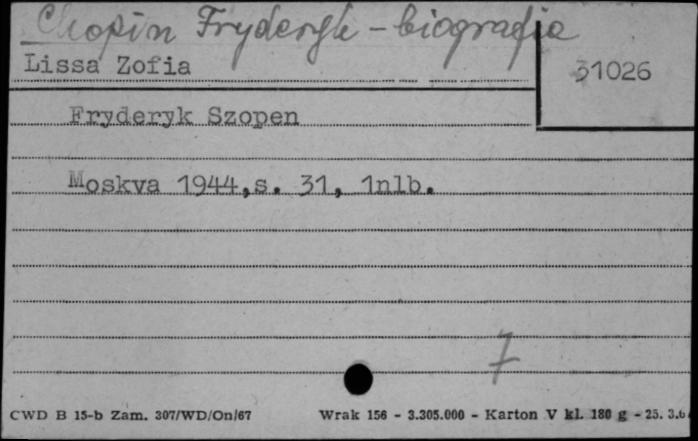 Chopin Fryderyk - biografia
Lissa Zofia
31026
Fryderyk Szopen
Moskva 1944,s. 31, 1nlb.
7
CWD B 15-b Zam. 307/WD/On/67 Wrak 156 - 3.305.000 - Karton V kl. 180 g - 25. 3.6